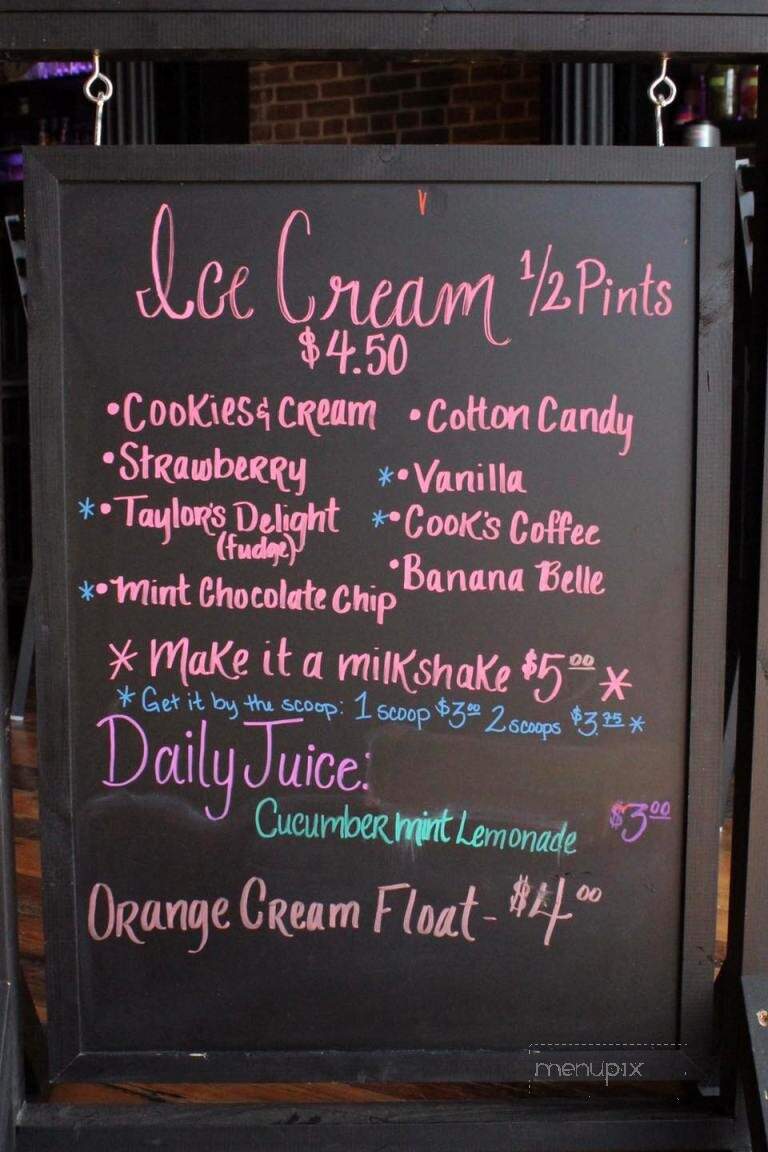 Ice Cream 1/2 Pints
$4.50
•Cookies & Cream •Cotton Candy
•Strawberry *•Vanilla
*•Taylor's Delight *•Cook's Coffee
(fudge)
•Banana Belle
*•Mint Chocolate Chip
* Make it a milkshake $5.00 *
* Get it by the scoop: 1 scoop $3.00 2 scoops $3.75 *
Daily Juice:
Cucumber mint Lemonade $3.00
Orange Cream Float - $4.00
menupix